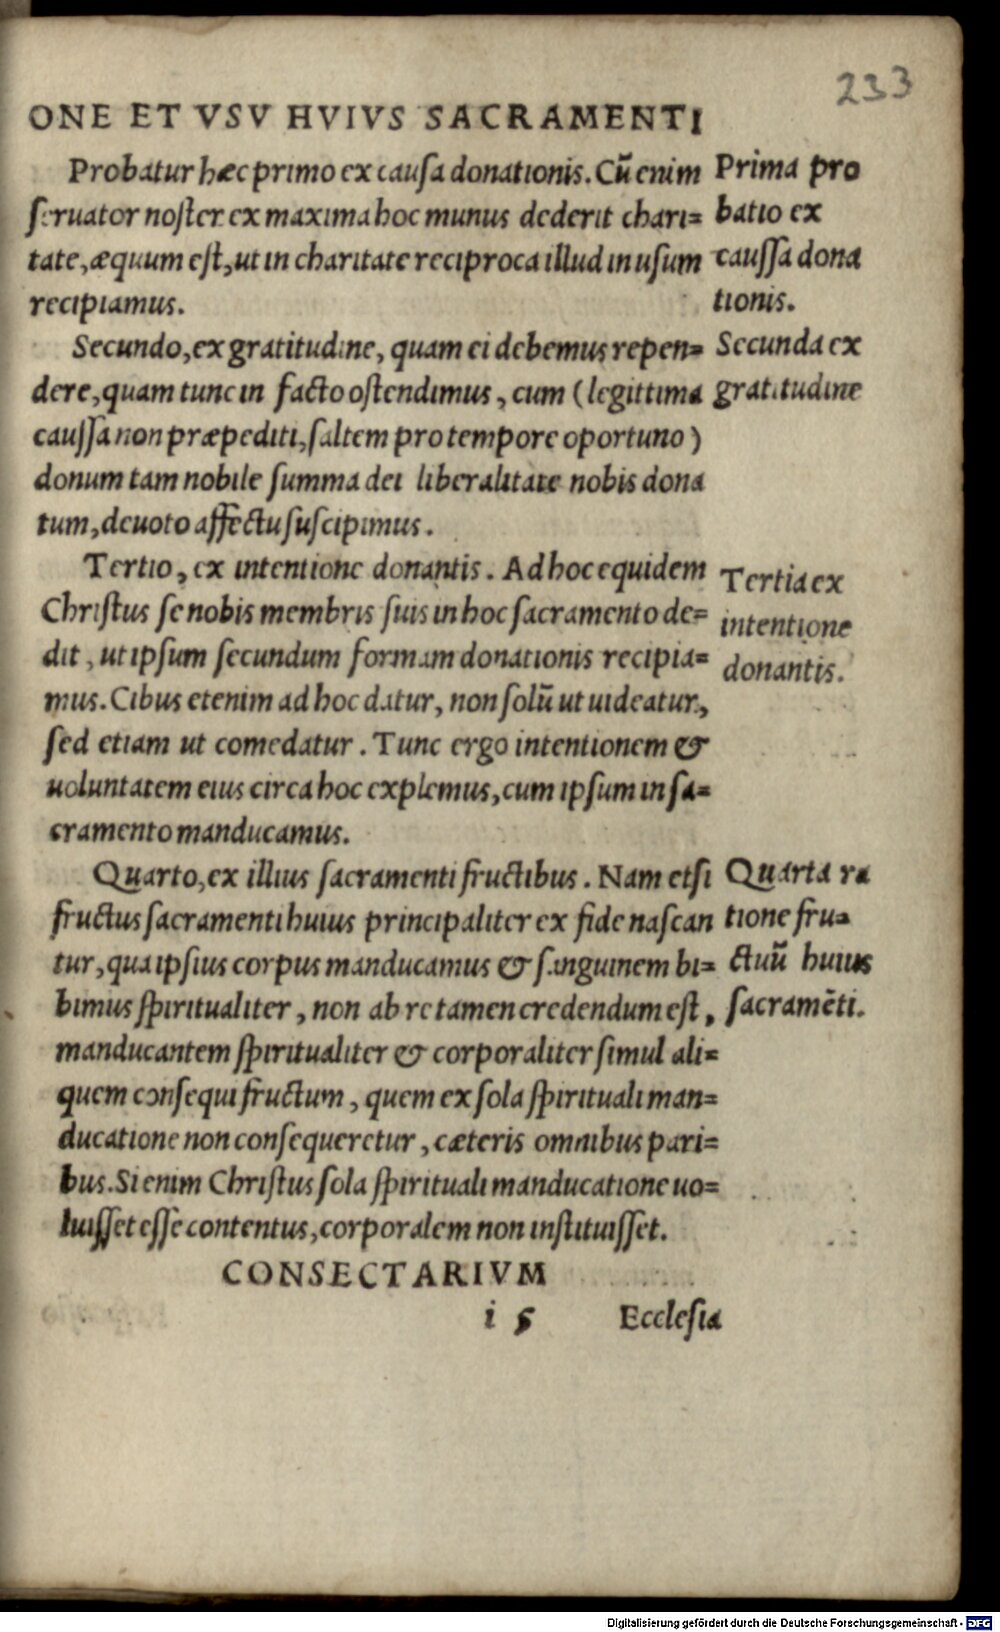 233
ONE ET VSV HVIVS SACRAMENTI
Probatur hæc primo ex causa donationis. Cũ enim
seruator noster ex maxima hoc munus dederit chari=
tate, æquum est, ut in charitate reciproca illud in usum
recipiamus.
Prima pro
batio ex
caussa dona
tionis.
Secundo, ex gratitudine, quam ei debemus repen=
dere, quam tunc in facto ostendimus, cum (legittima
caussa non præpediti, saltem pro tempore oportuno)
donum tam nobile summa dei liberalitate nobis dona
tum, deuoto affectu suscipimus.
Secunda ex
gratitudine
Tertio, ex intentione donantis. Ad hoc equidem
Christus se nobis membris suis in hoc sacramento de=
dit, ut ipsum secundum formam donationis recipia=
mus. Cibus etenim ad hoc datur, non solũ ut uideatur,
sed etiam ut comedatur. Tunc ergo intentionem &
uoluntatem eius circa hoc explemus, cum ipsum in sa=
cramento manducamus.
Tertia ex
intentione
donantis.
Quarto, ex illius sacramenti fructibus. Nam etsi
fructus sacramenti huius principaliter ex fide nascan
tur, qua ipsius corpus manducamus & sanguinem bi=
bimus spiritualiter, non ab re tamen credendum est,
manducantem spiritualiter & corporaliter simul ali=
quem consequi fructum, quem ex sola spirituali man=
ducatione non consequeretur, cæteris omnibus pari=
bus. Si enim Christus sola spirituali manducatione uo=
luisset esse contentus, corporalem non instituisset.
Quarta ra
tione fru=
ctuũ huius
sacramẽti.
CONSECTARIVM
i 5 Ecclesia
Digitalisierung gefördert durch die Deutsche Forschungsgemeinschaft - DFG